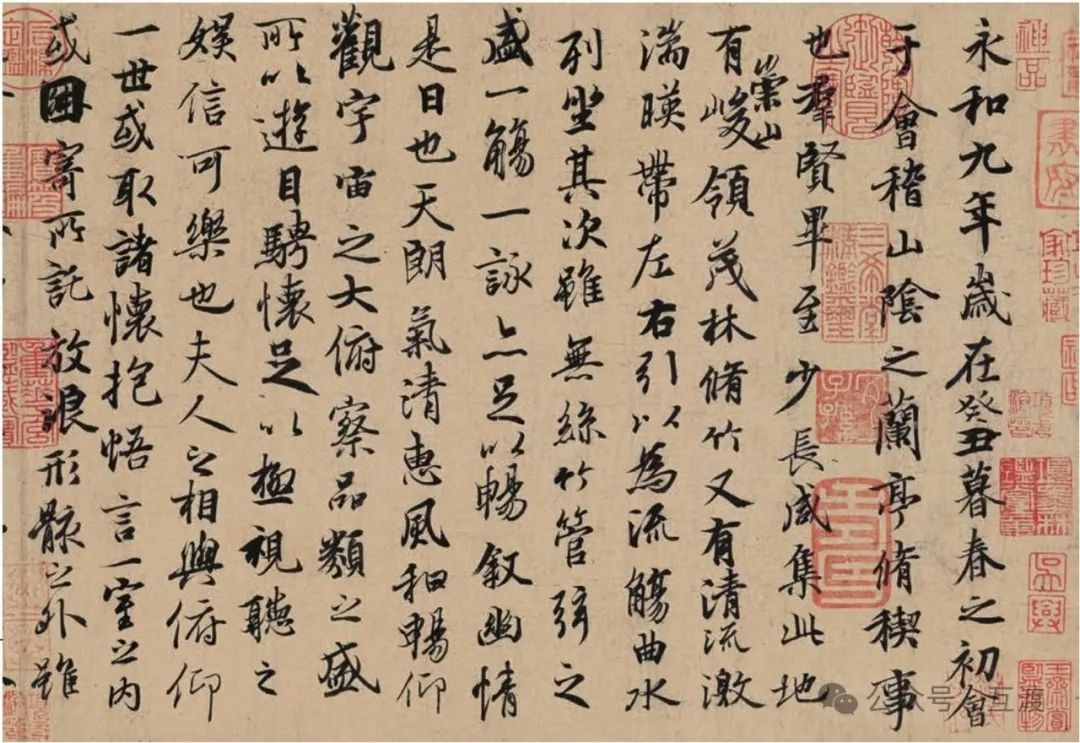 永和九年歲在癸丑暮春之初會
于會稽山陰之蘭亭脩稧事
也羣賢畢至少長咸集此地
有崇山峻領茂林脩竹又有清流激
湍暎帶左右引以為流觴曲水
列坐其次雖無絲竹管弦之
盛一觴一詠亦足以暢敘幽情
是日也天朗氣清惠風和暢仰
觀宇宙之大俯察品類之盛
所以遊目騁懷足以極視聽之
娛信可樂也夫人之相與俯仰
一世或取諸懷抱悟言一室之內
或因寄所託放浪形骸之外雖
神品
家珍藏
吳興
三希堂精鑑璽
公众号·互渡